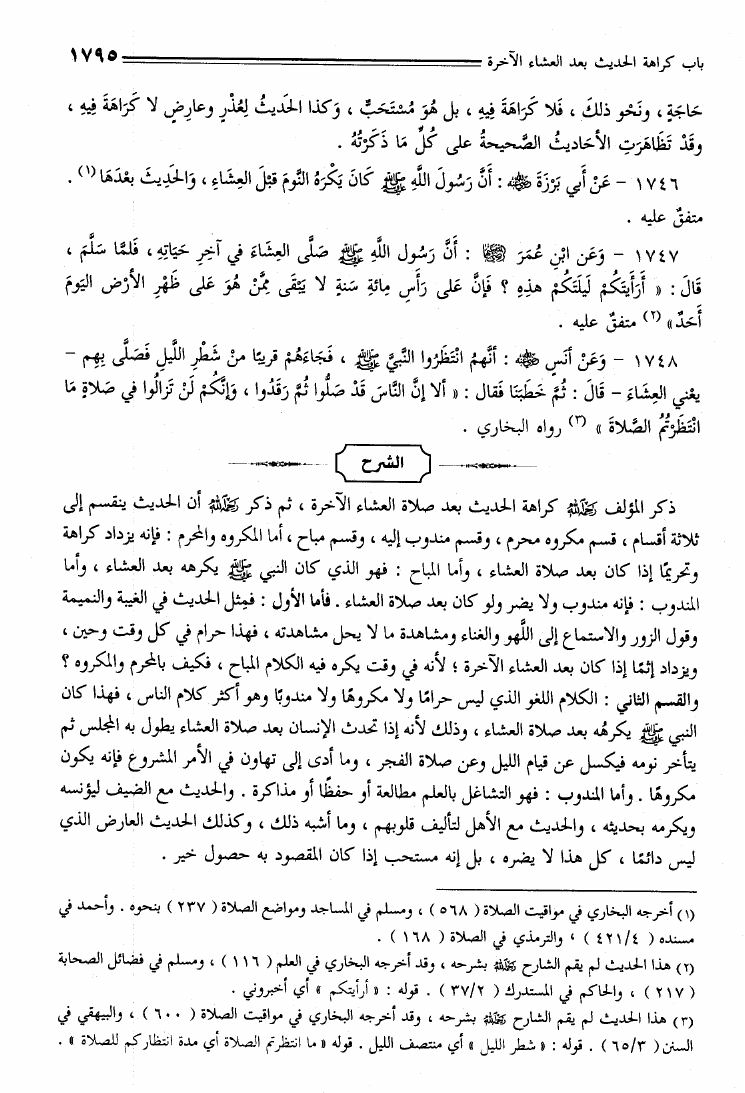 باب كراهة الحديث بعد العشاء الآخرة ١٧٩٥
حَاجَةٍ ، ونَحْو ذلكَ ، فَلا كَرَاهَةَ فِيهِ ، بل هُوَ مُسْتَحَبٌّ ، وَكذا الحَديثُ لِعُذْرٍ وعارِضٍ لا كَرَاهَةَ فِيهِ ،
وقَدْ تَظَاهَرَتِ الأحَاديثُ الصَّحيحةُ على كُلِّ مَا ذَكَرْتُهُ .
١٧٤٦ - عَنْ أبي بَرْزَةَ ﷺ : أنَّ رَسُولَ اللَّهِ ﷺ كَانَ يَكْرَهُ النَّومَ قبْلَ العِشَاءِ ، وَالحَدِيثَ بعْدَهَا (١) .
متفقٌ عليه .
١٧٤٧ - وَعَن ابْنِ عُمَرَ : أنَّ رَسُول اللَّهِ ﷺ صَلَّى العِشَاءَ في آخِرِ حَيَاتِهِ ، فَلمَّا سَلَّمَ ،
قَالَ : « أَرَأَيتَكُمْ لَيلَتَكُمْ هذِهِ ؟ فَإنَّ عَلى رَأْسِ مِائَةِ سَنةٍ لا يَبْقَى مِمَّنْ هُوَ عَلى ظَهْرِ الأَرْضِ اليَومَ
أَحَدٌ» (٢) متفقٌ عليه .
١٧٤٨ - وَعَنْ أنَسٍ : أنَّهمُ انْتَظَرُوا النَّبيَّ ﷺ ، فَجَاءَهُمْ قريبًا منْ شَطْرِ اللَّيلِ فَصَلَّى بِهِم -
يَعْني العِشَاءَ - قَالَ : ثُمَّ خَطَبَنَا فَقال : « ألا إنَّ النَّاسَ قَدْ صَلُّوا ثُمَّ رَقَدُوا ، وَإنَّكُمْ لَنْ تَزَالُوا في صَلاةٍ مَا
انْتَظَرْتُمُ الصَّلاةَ » (٣) رواه البخاري .
الشرح
ذكر المؤلف كراهة الحديث بعد صلاة العشاء الآخرة ، ثم ذكر أن الحديث ينقسم إلى
ثلاثة أقسام ، قسم مكروه محرم ، وقسم مندوب إليه ، وقسم مباح ، أما المكروه والمحرم : فإنه يزداد كراهة
وتحريمًا إذا كان بعد صلاة العشاء ، وأما المباح : فهو الذي كان النبي ﷺ يكرهه بعد العشاء ، وأما
المندوب : فإنه مندوب ولا يضر ولو كان بعد صلاة العشاء . فأما الأول : فمِثل الحديث في الغيبة والنميمة
وقول الزور والاستماع إلى اللَّهو والغناء ومشاهدة ما لا يحل مشاهدته ، فهذا حرام في كل وقت وحين ،
ويزداد إثمًا إذا كان بعد العشاء الآخرة ؛ لأنه في وقت يكره فيه الكلام المباح ، فكيف بالمحرم والمكروه ؟
والقسم الثاني : الكلام اللغو الذي ليس حرامًا ولا مكروهًا ولا مندوبًا وهو أكثر كلام الناس ، فهذا كان
النبي ﷺ يكرهُه بعد صلاة العشاء ، وذلك لأنه إذا تحدث الإنسان بعد صلاة العشاء يطول به المجلس ثم
يتأخر نومه فيكسل عن قيام الليل وعن صلاة الفجر ، وما أدى إلى تهاون في الأمر المشروع فإنه يكون
مكروهًا . وأما المندوب : فهو التشاغل بالعلم مطالعة أو حفظًا أو مذاكرة . والحديث مع الضيف ليؤنسه
ويكرمه بحديثه ، والحديث مع الأهل لتأليف قلوبهم ، وما أشبه ذلك ، وكذلك الحديث العارض الذي
ليس دائمًا ، كل هذا لا يضره ، بل إنه مستحب إذا كان المقصود به حصول خير .
(١) أخرجه البخاري في مواقيت الصلاة ( ٥٦٨ ) ، ومسلم في المساجد ومواضع الصلاة ( ٢٣٧ ) بنحوه . وأحمد في
مسنده ( ٤٢١/٤ ) ، والترمذي في الصلاة ( ١٦٨ ) .
(٢) هذا الحديث لم يقم الشارح بشرحه ، وقد أخرجه البخاري في العلم ( ١١٦ ) ، ومسلم في فضائل الصحابة
( ٢١٧ ) ، والحاكم في المستدرك ( ٣٧/٢ ) . قوله : « أرأيتكم » أي أخبروني .
(٣) هذا الحديث لم يقم الشارح بشرحه ، وقد أخرجه البخاري في مواقيت الصلاة ( ٦٠٠ ) ، والبيهقي في
السنن ( ٦٥/٣ ) . قوله : « شطر الليل » أي منتصف الليل . قوله « ما انتظرتم الصلاة أي مدة انتظاركم للصلاة » .